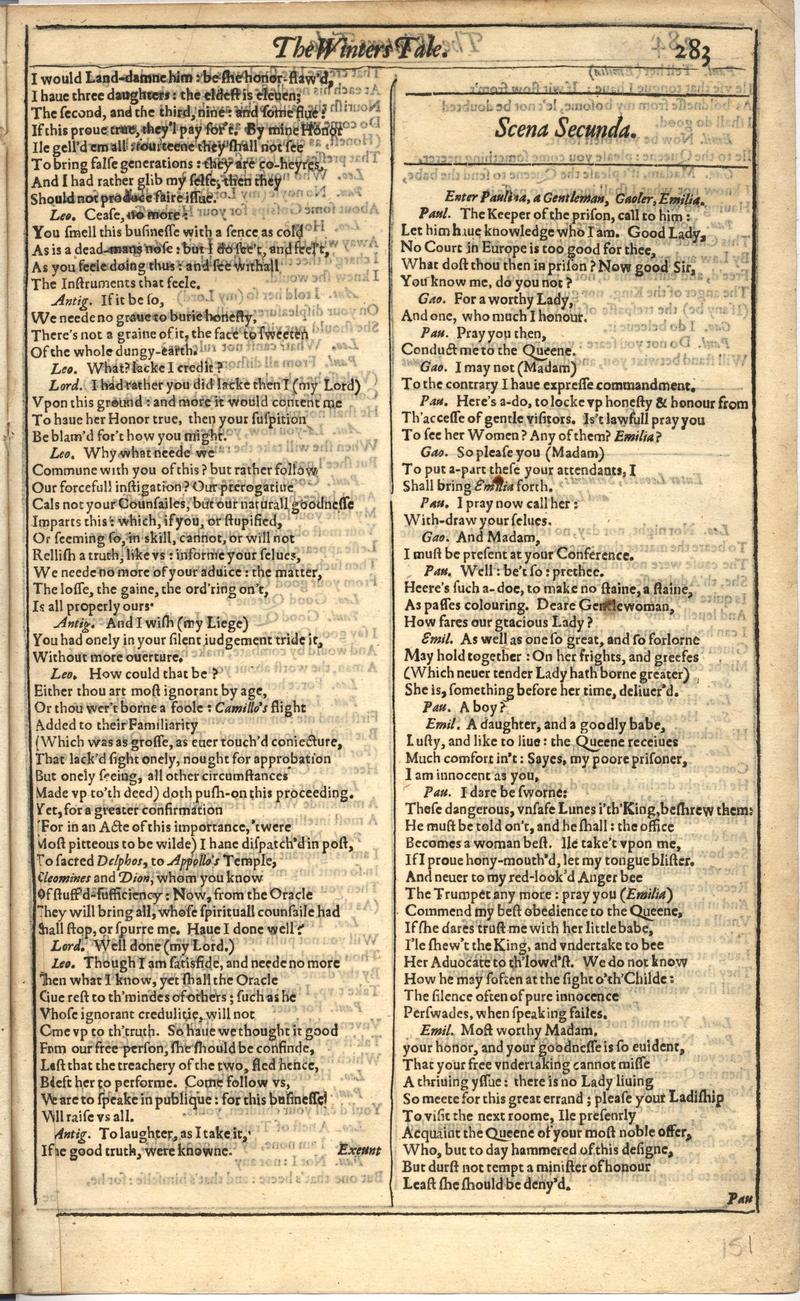 The Winters Tale.
283
I would Land-damne him: be she honor-flaw'd,
I haue three daughters: the eldest is eleuen;
The second, and the third, nine: and some fiue:
If this proue true, they'l pay for't. By mine Honor
Ile gell'd em all: fourteene they shall not see
To bring false generations: they are co-heyres,
And I had rather glib my selfe, then they
Should not produce faire issue.
Leo. Cease, no more:
You smell this businesse with a sence as cold
As is a dead-mans nose: but I do see't, and feel't,
As you feele doing thus: and see withall
The Instruments that feele.
Antig. If it be so,
We neede no graue to burie honesty,
There's not a graine of it, the face to sweeten
Of the whole dungy-earth.
Leo. What? lacke I credit?
Lord. I had rather you did lacke then I (my Lord)
Vpon this ground: and more it would content me
To haue her Honor true, then your suspition
Be blam'd for't how you might.
Leo. Why what neede we
Commune with you of this? but rather follow
Our forcefull instigation? Our prerogatiue
Cals not your Counsailes, but our naturall goodnesse
Imparts this: which, if you, or stupified,
Or seeming so, in skill, cannot, or will not
Rellish a truth, like vs: informe your selues,
We neede no more of your aduice: the matter,
The losse, the gaine, the ord'ring on't,
Is all properly ours.
Antig. And I wish (my Liege)
You had onely in your silent iudgement tride it,
Without more ouerture.
Leo. How could that be?
Either thou art most ignorant by age,
Or thou wer't borne a foole: Camillo's flight
Added to their Familiarity
(Which was as grosse, as euer touch'd coniecture,
That lack'd sight onely, nought for approbation
But onely seeing, all other circumstances
Made vp to'th deed) doth push-on this proceeding.
Yet, for a greater confirmation
(For in an Acte of this importance, 'twere
Most pitteous to be wilde) I haue dispatch'd in post,
To sacred Delphos, to Appollo's Temple,
Cleomines and Dion, whom you know
Of stuff'd-sufficiency: Now, from the Oracle
They will bring all, whose spirituall counsaile had
Shall stop, or spurre me. Haue I done well?
Lord. Well done (my Lord.)
Leo. Though I am satisfide, and neede no more
Then what I know, yet shall the Oracle
Giue rest to th'mindes of others; such as he
Whose ignorant credulitie, will not
Come vp to th'truth. So haue we thought it good
From our free person, she should be confinde,
Least that the treachery of the two, fled hence,
Be left her to performe. Come follow vs,
We are to speake in publique: for this businesse
Will raise vs all.
Antig. To laughter, as I take it,
If the good truth, were knowne. Exeunt
Scena Secunda.
Enter Paulina, a Gentleman, Gaoler, Emilia.
Paul. The Keeper of the prison, call to him:
Let him haue knowledge who I am. Good Lady,
No Court in Europe is too good for thee,
What dost thou then in prison? Now good Sir,
You know me, do you not?
Gao. For a worthy Lady,
And one, who much I honour.
Pau. Pray you then,
Conduct me to the Queene.
Gao. I may not (Madam)
To the contrary I haue expresse commandment.
Pau. Here's a-do, to locke vp honesty & honour from
Th'accesse of gentle visitors. Is't lawfull pray you
To see her Women? Any of them? Emilia?
Gao. So please you (Madam)
To put a-part these your attendants, I
Shall bring Emilia forth.
Pau. I pray now call her:
With-draw your selues.
Gao. And Madam,
I must be present at your Conference.
Pau. Well: be't so: prethee.
Heere's such a-doe, to make no staine, a staine,
As passes colouring. Deare Gentlewoman,
How fares our gracious Lady?
Emil. As well as one so great, and so forlorne
May hold together: On her frights, and greefes
(Which neuer tender Lady hath borne greater)
She is, something before her time, deliuer'd.
Pau. A boy?
Emil. A daughter, and a goodly babe,
Lusty, and like to liue: the Queene receiues
Much comfort in't: Sayes, my poore prisoner,
I am innocent as you,
Pau. I dare be sworne:
These dangerous, vnsafe Lunes i'th'King, beshrew them:
He must be told on't, and he shall: the office
Becomes a woman best. Ile take't vpon me,
If I proue hony-mouth'd, let my tongue blister.
And neuer to my red-look'd Anger bee
The Trumpet any more: pray you (Emilia)
Commend my best obedience to the Queene,
If she dares trust me with her little babe,
I'le shew't the King, and vndertake to bee
Her Aduocate to th'lowd'st. We do not know
How he may soften at the sight o'th'Childe:
The silence often of pure innocence
Perswades, when speaking failes.
Emil. Most worthy Madam,
your honor, and your goodnesse is so euident,
That your free vndertaking cannot misse
A thriuing yssue: there is no Lady liuing
So meete for this great errand; please your Ladiship
To visit the next roome, Ile presently
Acquaint the Queene of your most noble offer,
Who, but to day hammered of this designe,
But durst not tempt a minister of honour
Least she should be deny'd.
Pau
151